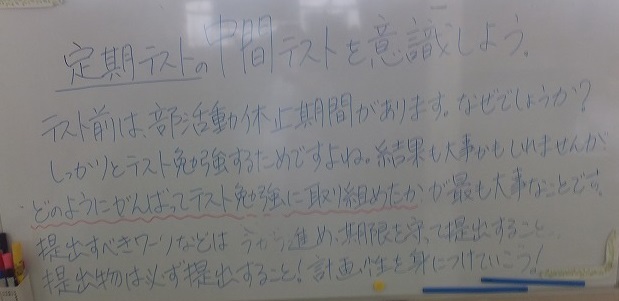 定期テストの中間テストを意識しよう。
テスト前は、部活動休止期間があります。なぜでしょうか?
しっかりとテスト勉強するためですよね。結果も大事かもしれませんが
どのようにがんばってテスト勉強に取り組めたかが最も大事なことです。
提出すべきワークなどは今から進め、期限を守って提出すること。
提出物は必ず提出すること!計画性を身につけていこう!